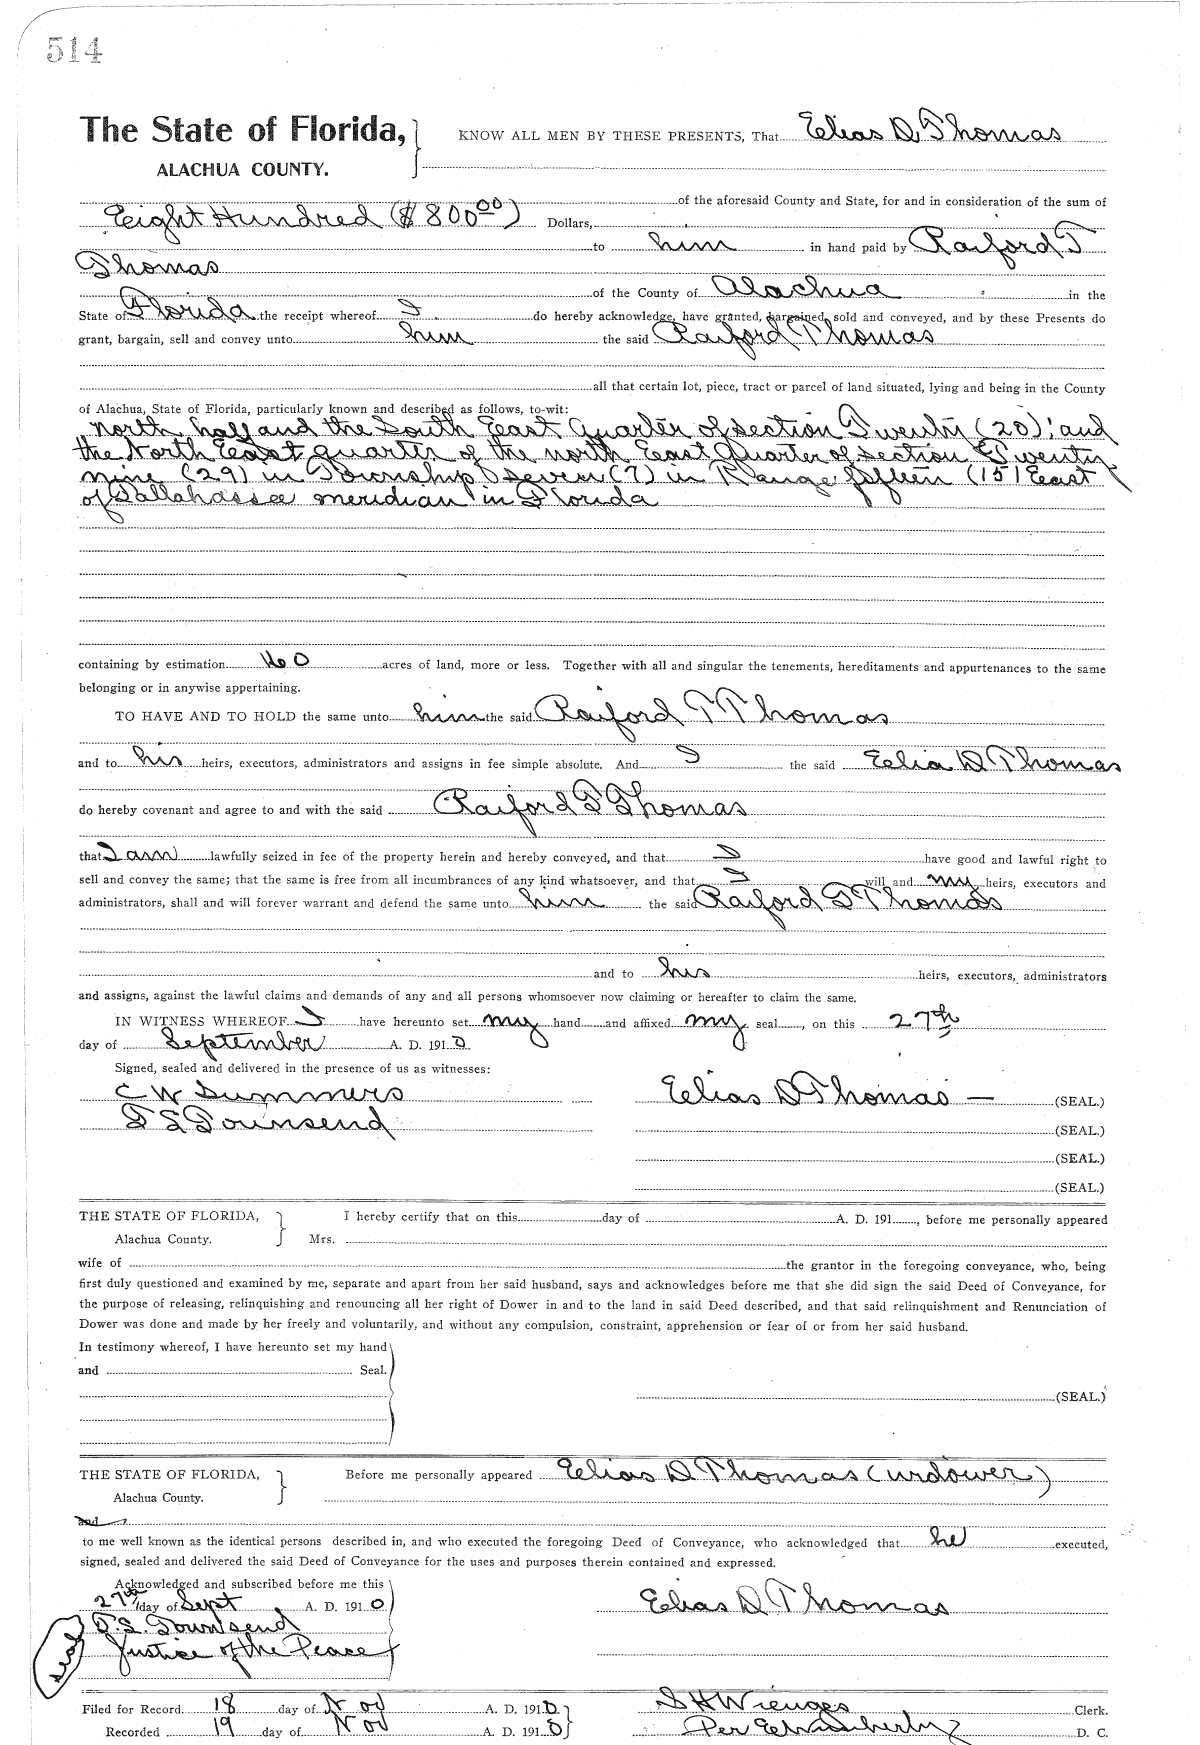 514
The State of Florida, KNOW ALL MEN BY THESE PRESENTS, That Elias D. Thomas
ALACHUA COUNTY.
of the aforesaid County and State, for and in consideration of the sum of
Eight Hundred ($800.00) Dollars,
to him in hand paid by Raiford T
Thomas
of the County of Alachua in the
State of Florida the receipt whereof I do hereby acknowledge, have granted, bargained, sold and conveyed, and by these Presents do
grant, bargain, sell and convey unto him the said Raiford T Thomas
all that certain lot, piece, tract or parcel of land situated, lying and being in the County
of Alachua, State of Florida, particularly known and described as follows, to-wit:
North half and the South East Quarter of section Twenty (20); and
the North East quarter of the north East Quarter of section Twenty
nine (29) in Township Seven (7) in Range fifteen (15) East
of Tallahassa meridian in Florida
containing by estimation acres of land, more or less. Together with all and singular the tenements, hereditaments and appurtenances to the same
belonging or in anywise appertaining.
TO HAVE AND TO HOLD the same unto him the said Raiford T Thomas
and to his heirs, executors, administrators and assigns in fee simple absolute. And I the said Elia D Thomas
do hereby covenant and agree to and with the said Raiford T Thomas
that I am lawfully seized in fee of the property herein and hereby conveyed, and that I have good and lawful right to
sell and convey the same; that the same is free from all incumbrances of any kind whatsoever, and that I will and my heirs, executors and
administrators, shall and will forever warrant and defend the same unto him the said Raiford T Thomas
and to his heirs, executors, administrators
and assigns, against the lawful claims and demands of any and all persons whomsoever now claiming or hereafter to claim the same.
IN WITNESS WHEREOF I have hereunto set my hand and affixed my seal, on this 27th
day of September A. D. 1910.
Signed, sealed and delivered in the presence of us as witnesses:
C W Summers Elias D Thomas (SEAL.)
T S Townsend (SEAL.)
(SEAL.)
(SEAL.)
THE STATE OF FLORIDA, I hereby certify that on this day of A. D. 191 , before me personally appeared
Alachua County. Mrs.
wife of the grantor in the foregoing conveyance, who, being
first duly questioned and examined by me, separate and apart from her said husband, says and acknowledges before me that she did sign the said Deed of Conveyance, for
the purpose of releasing, relinquishing and renouncing all her right of Dower in and to the land in said Deed described, and that said relinquishment and Renunciation of
Dower was done and made by her freely and voluntarily, and without any compulsion, constraint, apprehension or fear of or from her said husband.
In testimony whereof, I have hereunto set my hand
and Seal.
(SEAL.)
THE STATE OF FLORIDA, Before me personally appeared Elias D Thomas (widower)
Alachua County.
and
to me well known as the identical persons described in, and who executed the foregoing Deed of Conveyance, who acknowledged that he executed,
signed, sealed and delivered the said Deed of Conveyance for the uses and purposes therein contained and expressed.
Acknowledged and subscribed before me this
27th day of Sept A. D. 1910 Elias D Thomas
T. S. Townsend
Justice of the Peace
seal
Filed for Record 18 day of Nov A. D. 1910 S H Wienges Clerk.
Recorded 19 day of Nov A. D. 1910 Per D. C.